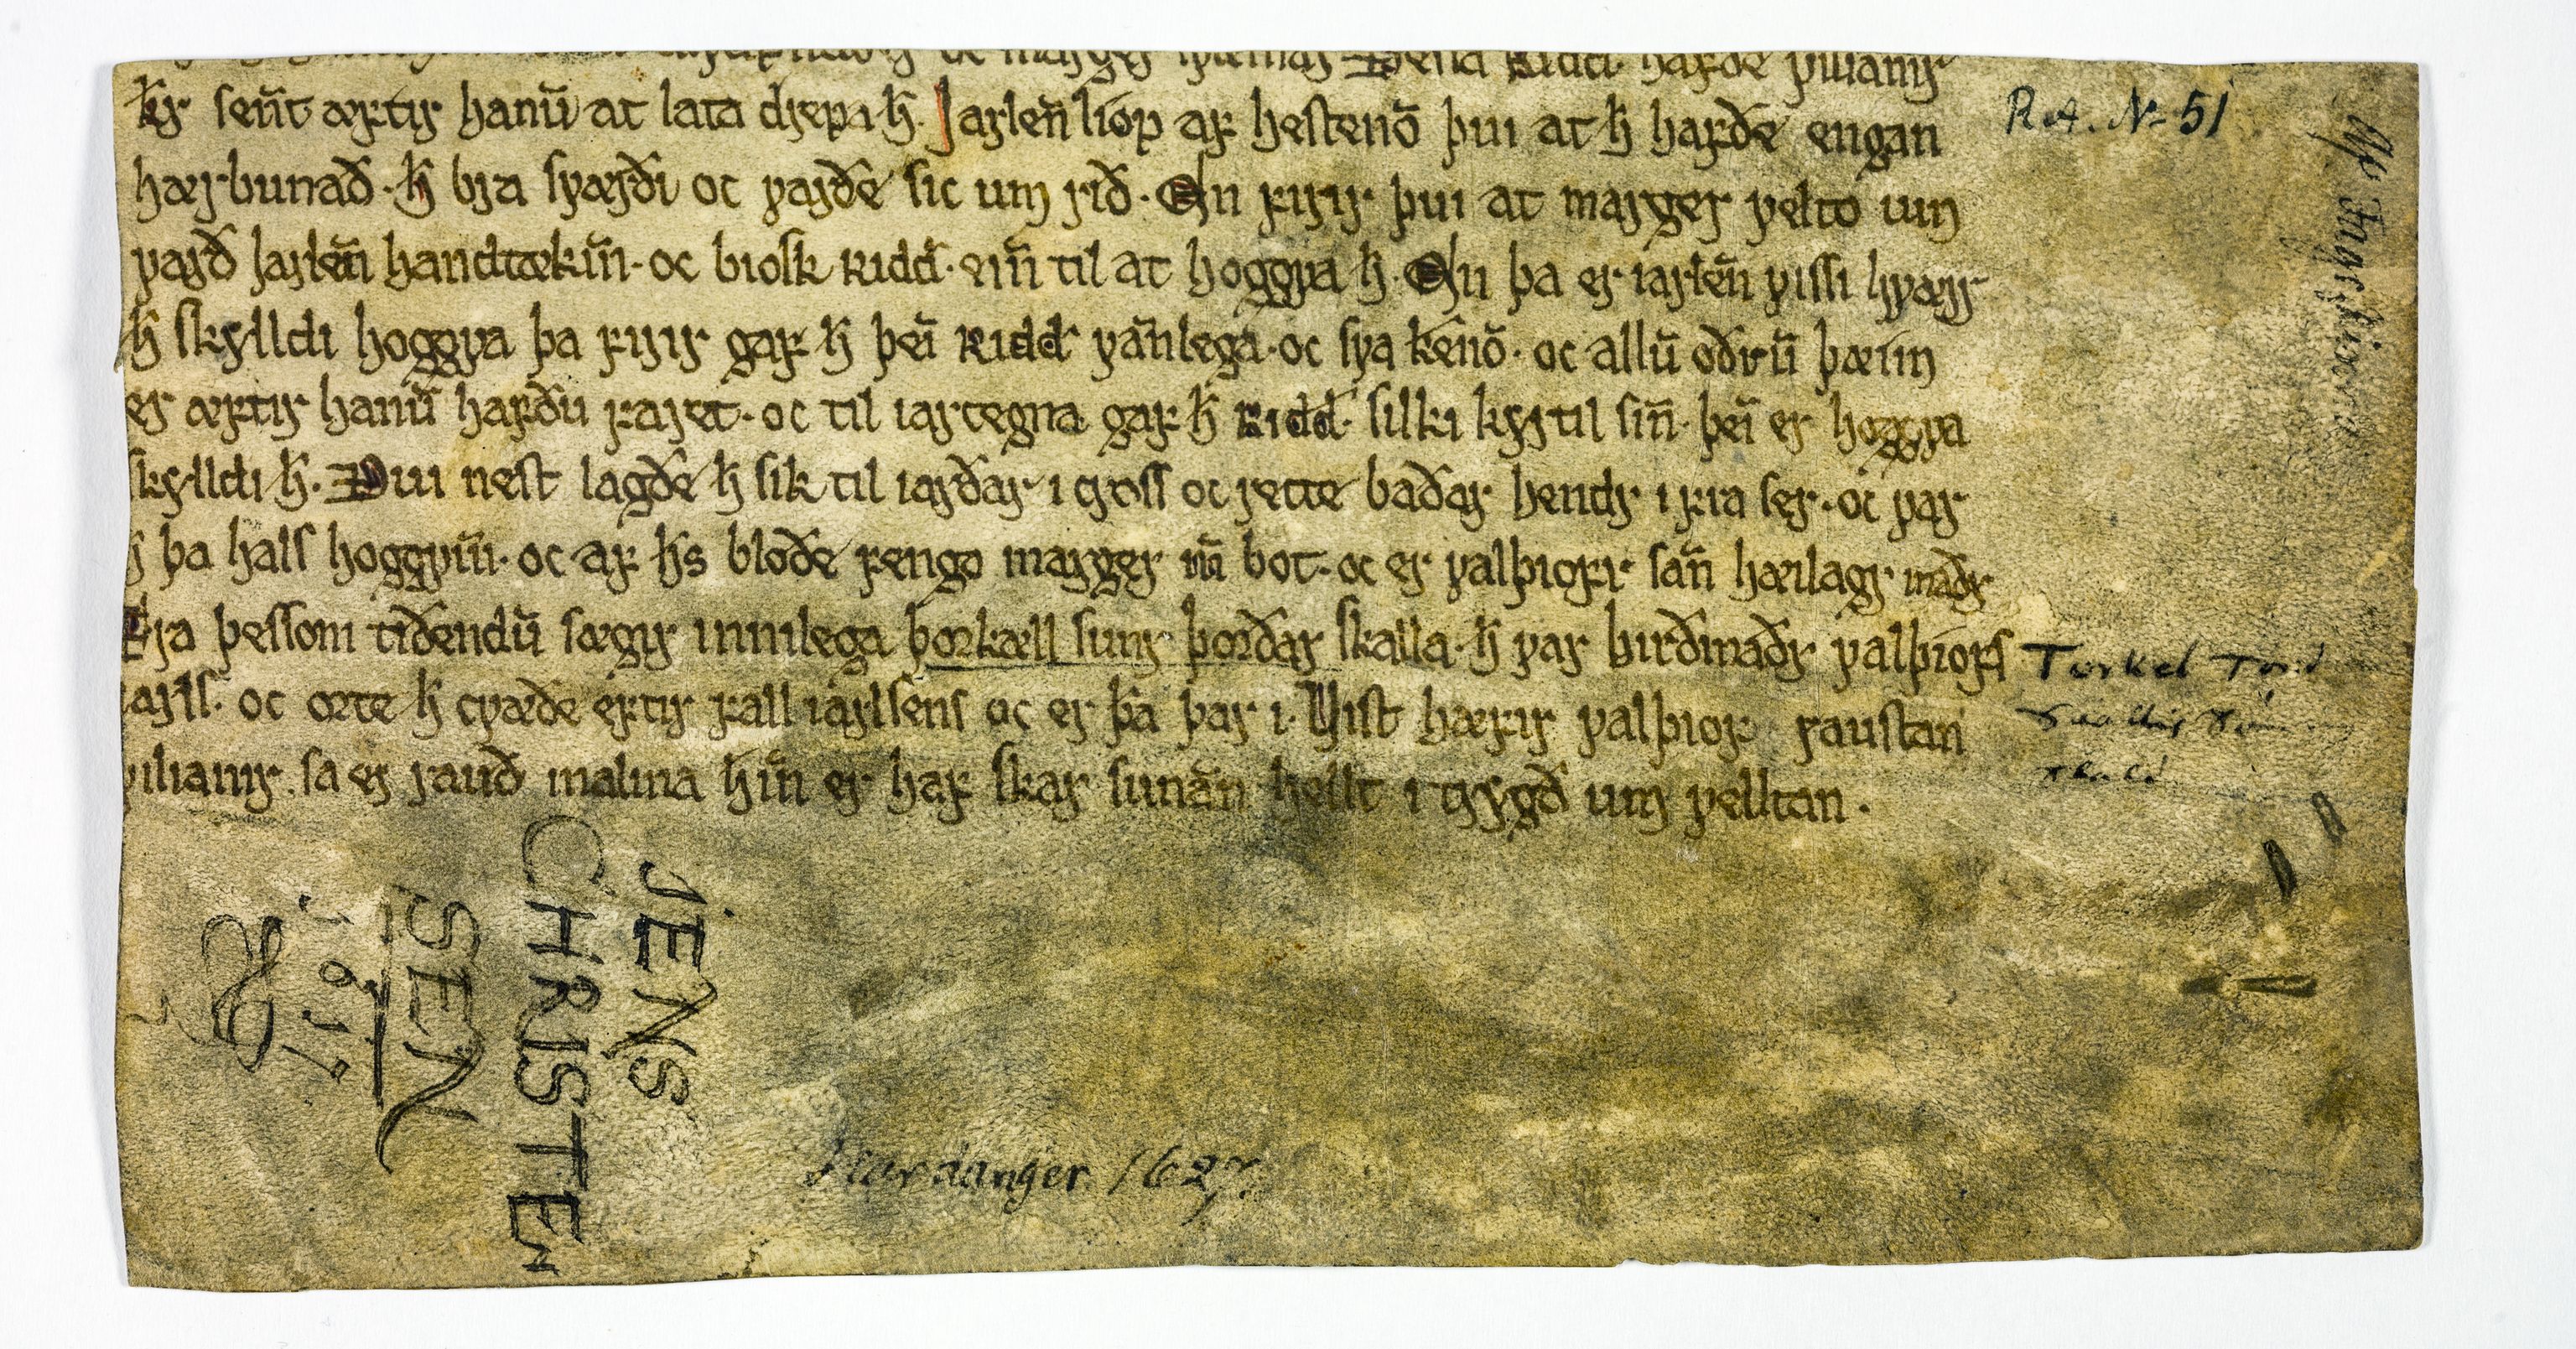 oc marger Þena Ridd. hafde viliamr
kr sen̄t æftir hanū at lata drepa ꝧ. Jarlen̄ liop af hestenō þui at ꝧ hafðe engan
hærbunað. ꝧ bra sværði oc varðe sic um rið. En firir þui at marger velto um
varð Jarlen̄ handtækin̄. oc biosk ridd. ein̄ til at hoggva ꝧ. En þa er iarlen̄ vissi hvarr
ꝧ skylldi hoggva þa firir gaf ꝧ þei̅ Ridd vanlega. oc sva kēnō. oc allū oðrū þæim
er æftir hanū hafðu faret. oc til iartegna gaf ꝧ Ridd. silki kyrtil sin̄. þei̅ er hoggva
skylldi ꝧ. Þui nest lagðe ꝧ sik til iarðar i cross oc rette baðar hendr i fra ser. oc var
ꝧ þa hals hoggvin̄. oc af ꝧs bloðe fengo marger m̄ bot. oc er valþiofr san̄ hæilagr maðr
Fra þessom tiðendū sægir innilega þorkæll sunr þorðar skalla. ꝧ var hirðmaðr valþiofs
iarls. oc orte ꝧ cvæðe eftir fall iarlsens oc er þa þar i. Vist hæfir valþiof raustan
viliamr. sa er rauð malma hin̄ er haf skar sunan hellt i trygð um velltan.
R.A. No 51
Torkel Tord
JENS
CHRISTE
SEN
Hardanger 1627.